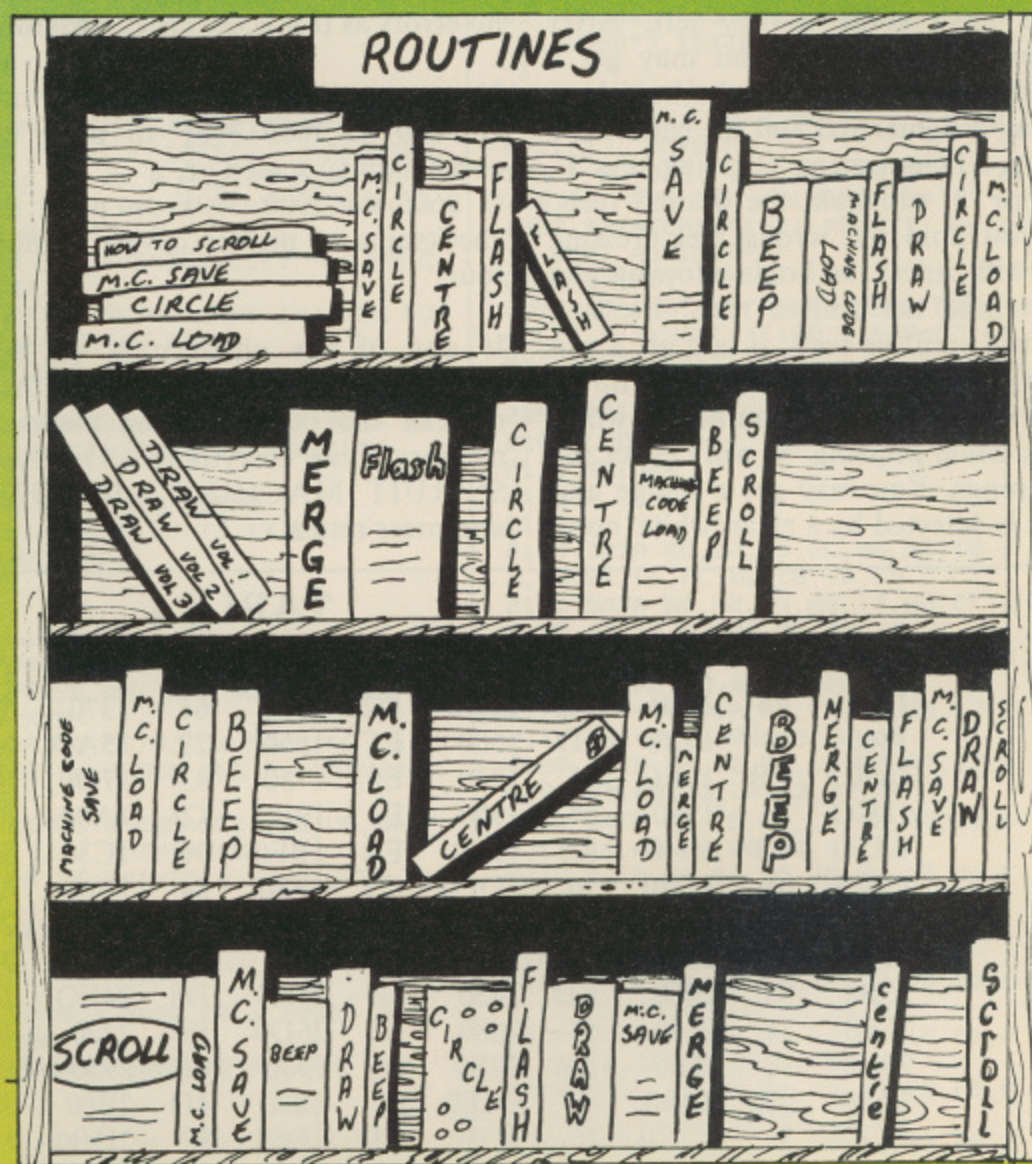 ROUTINES
HOW TO SCROLL
M.C. SAVE
CIRCLE
M.C. LOAD
M.C.SAVE
CIRCLE
CENTRE
FLASH
FLASH
M.C. SAVE
CIRCLE
BEEP
MACHINE CODE
LOAD
FLASH
DRAW
CIRCLE
M.C.LOAD
DRAW VOL 3
DRAW VOL 2
DRAW VOL 1
MERGE
Flash
CIRCLE
CENTRE
MACHINE
CODE
LOAD
BEEP
SCROLL
MACHINE CODE
SAVE
M.C.LOAD
CIRCLE
BEEP
M.C.LOAD
CENTRE
M.C.LOAD
MERGE
CENTRE
BEEP
MERGE
CENTRE
FLASH
M.C.SAVE
DRAW
SCROLL
SCROLL
M.C. LOAD
M.C.SAVE
BEEP
DRAW
BEEP
CIRCLE
FLASH
DRAW
M.C.
SAVE
MERGE
centre
SCrOll